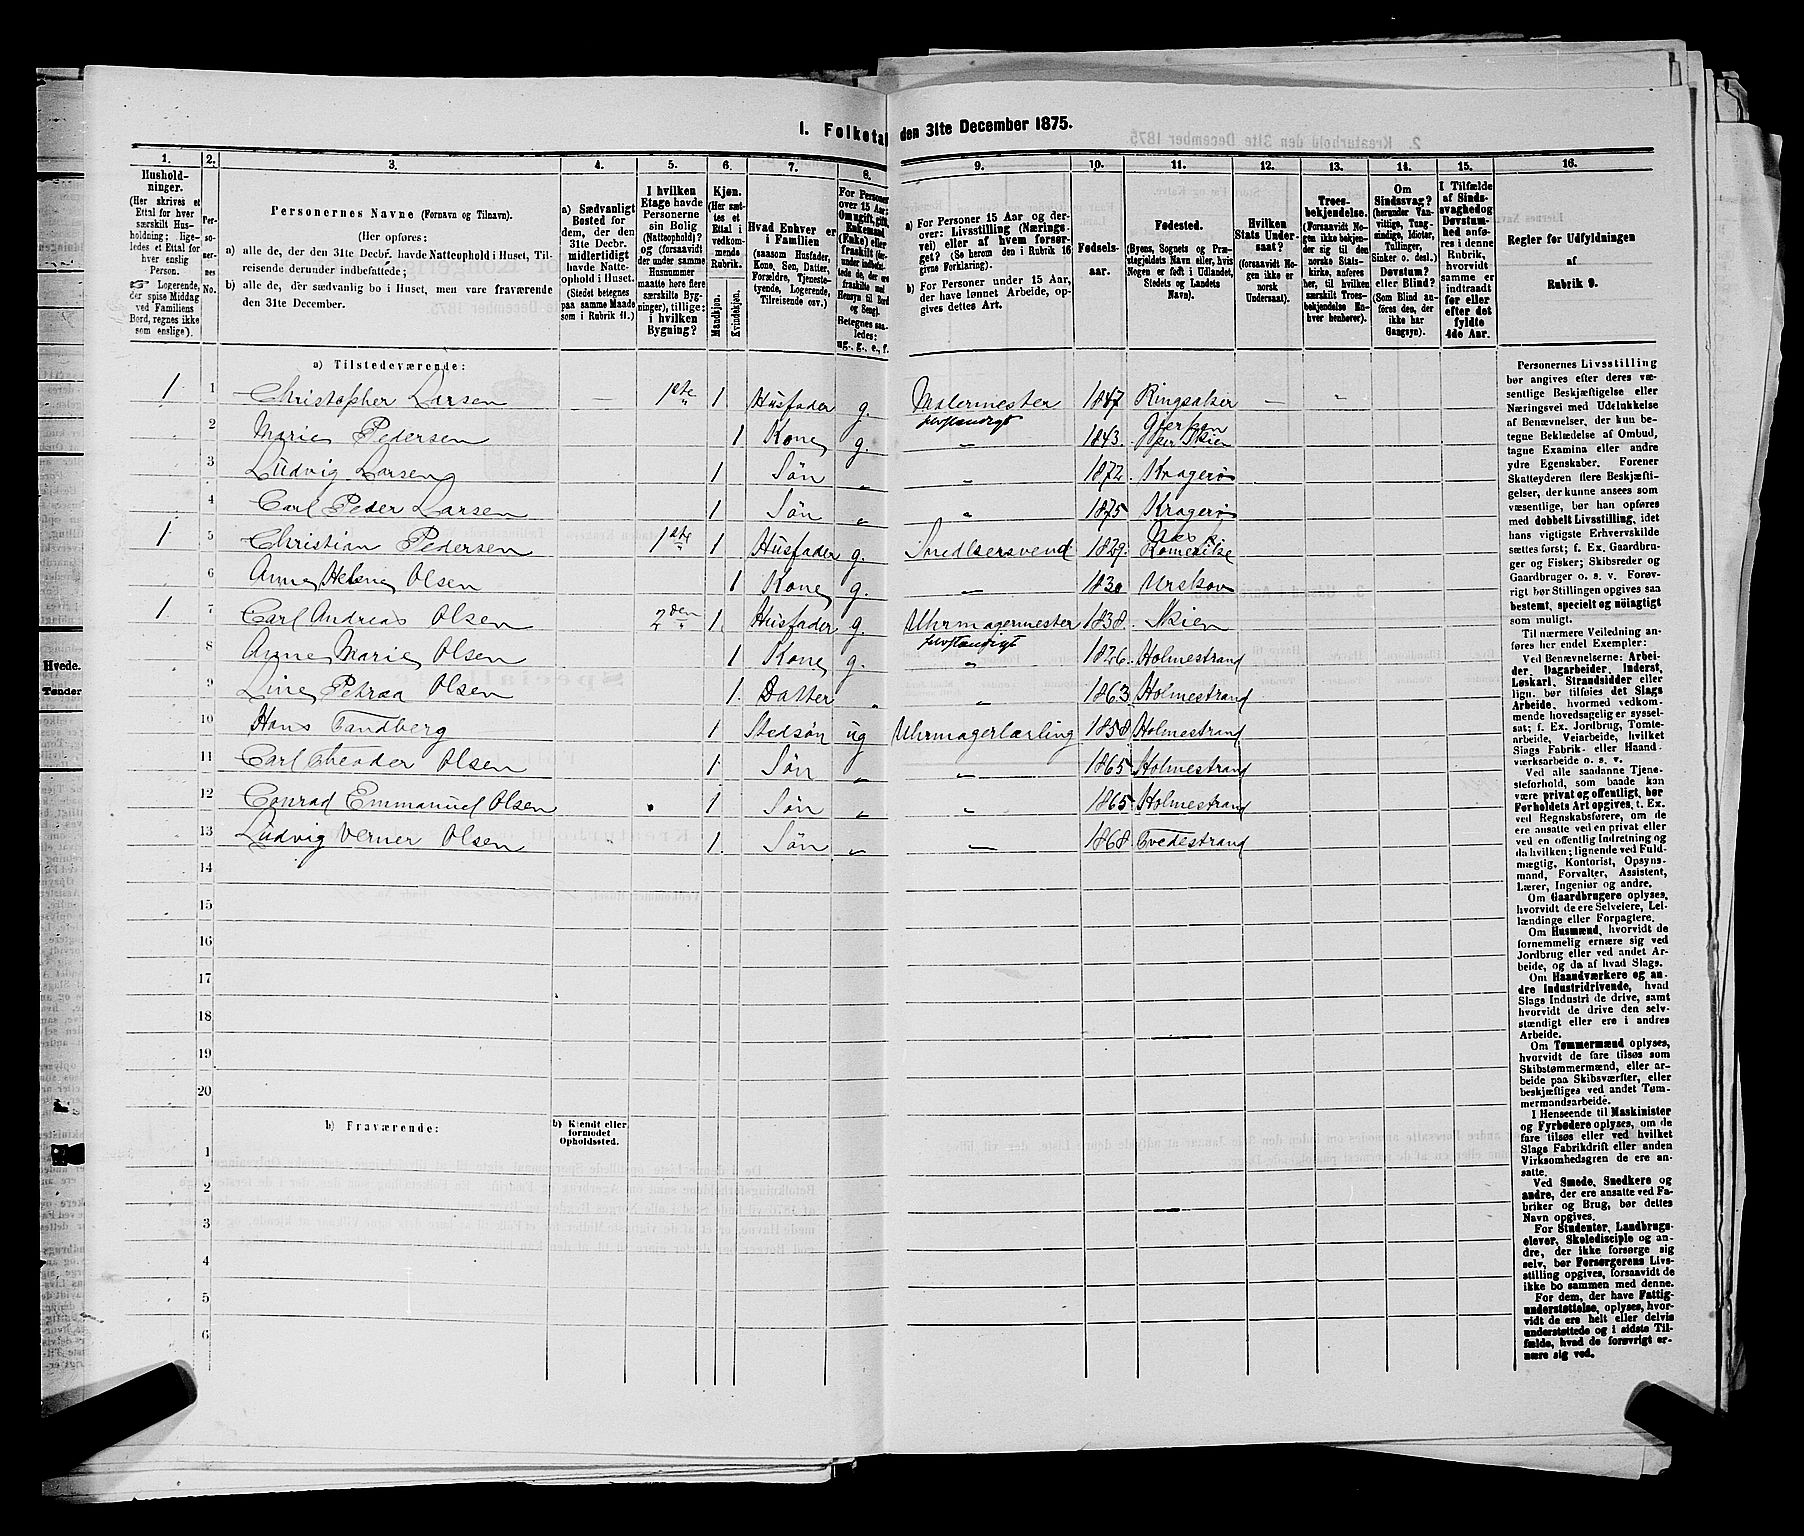 1. Folketal den 31te December 1875.
1. 2. 3. 4. 5. 6. 7. 8. 9. 10. 11. 12. 13. 14. 15. 16.
Husholdninger. (Her skrives et Ettal for hver særskilt Husholdning; ligeledes et Ettal for hver enslig Person. ☞ Logerende, der spise Middag ved Familiens Bord, regnes ikke som enslige).
Personernes No.
Personernes Navne (Fornavn og Tilnavn).
(Her opføres:
a) alle de, der den 31te Decbr. havde Natteophold i Huset, Tilreisende derunder indbefattede;
b) alle de, der sædvanlig bo i Huset, men vare fraværende den 31te December.
a) Sædvanligt Bosted for dem, der den 31te Decbr. midlertidigt havde Natteophold i Huset. (Stedet betegnes paa samme Maade som i Rubrik 11.)
I hvilken Etage havde Personerne sin Bolig (Natteophold)? og (forsaavidt der under samme Husnummer maatte høre flere særskilte Bygninger), tillige: i hvilken Bygning?
Kjøn. (Her sættes et Ettal i vedkommende Rubrik.
Mandkjøn. Kvindekjøn.
Hvad Enhver er i Familien (saasom Husfader, Kone, Søn, Datter, Forældre, Tjenestetyende, Logerende, Tilreisende osv.)
For Personer over 15 Aar: Om ugift, gift, Enkemand (Enke) eller fraskilt
Betegnes saaledes: ug., g., e., f.
a) For Personer 15 Aar og derover: Livsstilling (Næringsvei) eller af hvem forsørget? (Se herom den i Rubrik 16 givne Forklaring).
b) For Personer under 15 Aar, der have lønnet Arbeide, opgives dettes Art.
Fødselsaar.
Fødested. (Byens, Sognets og Præstegjeldets Navn eller, hvis Nogen er født i Udlandet, Stedets og Landets Navn).
Hvilken Stats Undersaat? (forsaavidt Nogen ikke er norsk Undersaat).
Troesbekjendelse. (Forsaavidt Nogen ikke bekjender sig til den norske Statskirke, anføres her, til hvilken særskilt Troesbekjendelse Enhver henhører).
Om Sindssvag? (herunder Vanvittige, Tungsindige, Idioter, Tullinger, Sinker o. desl.) Døvstum? eller Blind? (Som Blind anføres den, der ikke har Gangsyn).
I Tilfælde af Sindssvaghed og Døvstumhed anføres i denne Rubrik, hvorvidt samme er indtraadt før eller efter det fyldte 4de Aar.
Regler for Udfyldningen af Rubrik 9.
a) Tilstedeværende:
1 1 Christopher Larsen — 1ste 1 Husfader g. Malermester selvstændigt 1847 Ringsaker — "
2 Marie Pedersen 1 Kone g. " 1843. Gjerpen per Skien
3 Ludvig Larsen 1 Søn " " 1872. Kragerø
4 Carl Peder Larsen 1 Søn " " 1875 Kragerø
1 5 Christian Pedersen 1ste 1 Husfader g. Snedkersvend 1829. Næs Romerike
6 Anne Helene Olsen 1 Kone g. " 1830 Urskov
1 7 Carl Andreas Olsen 2den 1. Husfader g. Uhrmagermester selvstændigt 1838. Skien
8 Anne Marie Olsen 1 Kone g. " 1826. Holmestrand
9 Line Petrea Olsen 1. Datter " " 1863 Holmestrand
10 Hans Sandberg 1 Stedsøn ug Uhrmagerlærling 1858 Holmestrand
11 Carl Theoder Olsen 1. Søn " " 1865 Holmestrand
12 Conrad Emmanuel Olsen 1 Søn " " 1865 Holmestrand
13 Ludvig Verner Olsen 1. Søn " " 1868. Tvedestrand
14
15
16
17
18
19
20
b) Fraværende:
b) Kjendt eller formodet Opholdssted.
1
2
3
4
5
6
Personernes Livsstilling
bør angives efter deres væ-
sentlige Beskjæftigelse eller
Næringsvei med Udelukkelse
af Benævnelser, der kun be-
tegne Beklædelse af Ombud,
tagne Examina eller andre
ydre Egenskaber. Forener
Skatteyderen flere Beskjæfti-
gelser, der kunne ansees som
væsentlige, bør han opføres
med dobbelt Livsstilling, idet
hans vigtigste Erhvervskilde
sættes først; f. Ex. Gaardbru-
ger og Fisker; Skibsreder og
Gaardbruger o. s. v. Forøv-
rigt bør Stillingen opgives saa
bestemt, specielt og nøiagtigt
som muligt.
Til nærmere Veiledning an-
føres her endel Exempler:
Ved Benævnelserne: Arbei-
der, Dagarbeider, Inderst,
Løskarl, Strandsidder eller
lign. bør tilføies det Slags
Arbeide, hvormed vedkom-
mende hovedsagelig er syssel-
sat; f. Ex. Jordbrug, Tomte-
arbeide, Veiarbeide, hvilket
Slags Fabrik- eller Haand-
værksarbeide o. s. v.
Ved alle saadanne Tjene-
steforhold, som baade kan
være privat og offentligt, bør
Forholdets Art opgives, f. Ex.
ved Regnskabsførere, om de
ere ansatte ved en privat eller
ved en offentlig Indretning og
da hvilken; lignende ved Fuld-
mægtig, Kontorist, Opsyns-
mand, Forvalter, Assistent,
Lærer, Ingeniør og andre.
Om Gaardbrugere oplyses,
hvorvidt de ere Selveiere, Lei-
lændinge eller Forpagtere.
Om Husmænd, hvorvidt de
fornemmelig ernære sig ved
Jordbrug eller ved andet Ar-
beide, og da af hvad Slags.
Om Haandværkere og an-
dre Industridrivende, hvad
Slags Industri de drive, samt
hvorvidt de drive den selv-
stændigt eller ere i andres
Arbeide.
Om Tømmermænd oplyses,
hvorvidt de fare tilsøs som
Skibstømmermænd, eller ar-
beide paa Skibsværfter, eller
beskjæftiges ved andet Tøm-
mermandsarbeide.
I Henseende til Maskinister
og Fyrbødere oplyses, om de
fare tilsøs eller ved hvilket
Slags Fabrikdrift eller anden
Virksomhedsgren de ere an-
satte.
Ved Smede, Snedkere og
andre, der ere ansatte ved Fa-
briker og Brug, bør dettes
Navn opgives.
For Studenter, Landbrugs-
elever, Skoledisciple og an-
dre, der ikke forsørge sig
selv, bør Forsørgerens Livs-
stilling opgives, forsaavidt de
ikke bo sammen med denne.
For dem, der have Fattig-
understøttelse, oplyses, hvor-
vidt de ere helt eller delvis
understøttede og i sidste Til-
fælde, hvad de forøvrigt er-
nære sig ved.
Hvede.
Tønder